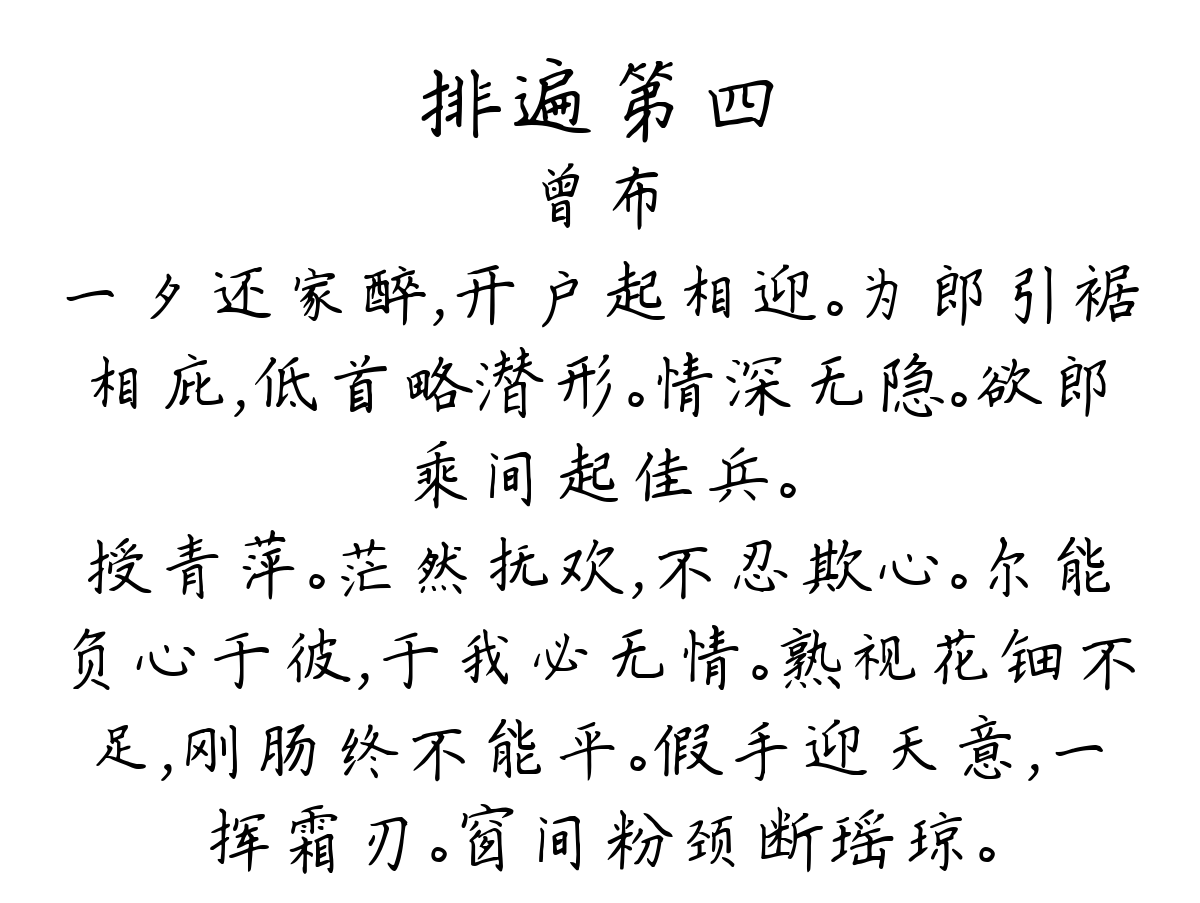 排遍第四
曾布
一夕还家醉,开户起相迎。为郎引裾
相庇,低首略潜形。情深无隐。欲郎
乘间起佳兵。
授青萍。茫然抚欢,不忍欺心。尔能
负心于彼,于我必无情。熟视花钿不
足,刚肠终不能平。假手迎天意,一
挥霜刃。窗间粉颈断瑶琼。